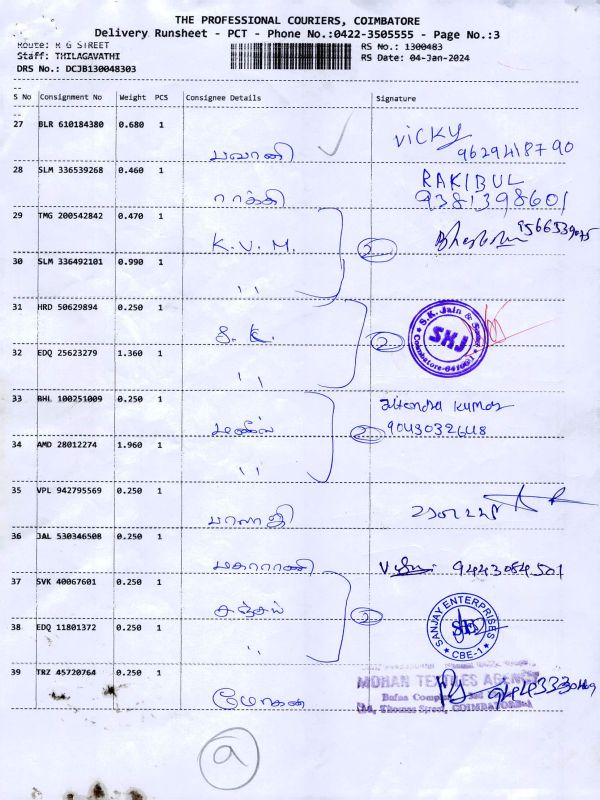 THE PROFESSIONAL COURIERS, COIMBATORE
Delivery Runsheet - PCT - Phone No.:0422-3505555 - Page No.:3
Route: R G STREET RS No.: 1300483
Staff: THILAGAVATHI RS Date: 04-Jan-2024
DRS No.: DCJB130048303
S No Consignment No Weight PCS Consignee Details Signature
27 BLR 610184380 0.680 1 VICKY
பவானி 9629418790
28 SLM 336539268 0.460 1 RAKIBUL
ராக்கி 9381398601
29 TMG 200542842 0.470 1
K.V.M. 2 9566539075
30 SLM 336492101 0.990 1
"
31 HRD 50629894 0.250 1 S.K. Jain & Sons
S.K. 2 SKJ
Coimbatore-641001
32 EDQ 25623279 1.360 1
"
33 BHL 100251009 0.250 1 Jitendra Kumar
2 9043032648
34 AMD 28012274 1.960 1
"
35 VPL 942795569 0.250 1
பாலாஜி
36 JAL 530346508 0.250 1
மகாராணி 9443084501
37 SVK 40067601 0.250 1 SANJAY ENTERPRISES
சஞ்சய் 2 SE
CBE-1
38 EDQ 11801372 0.250 1
"
39 TRZ 45720764 0.250 1 MOHAN TEXTILES AGENCY
Bafna Complex
மோகன் Thomas Street, COIMBATORE-1
a